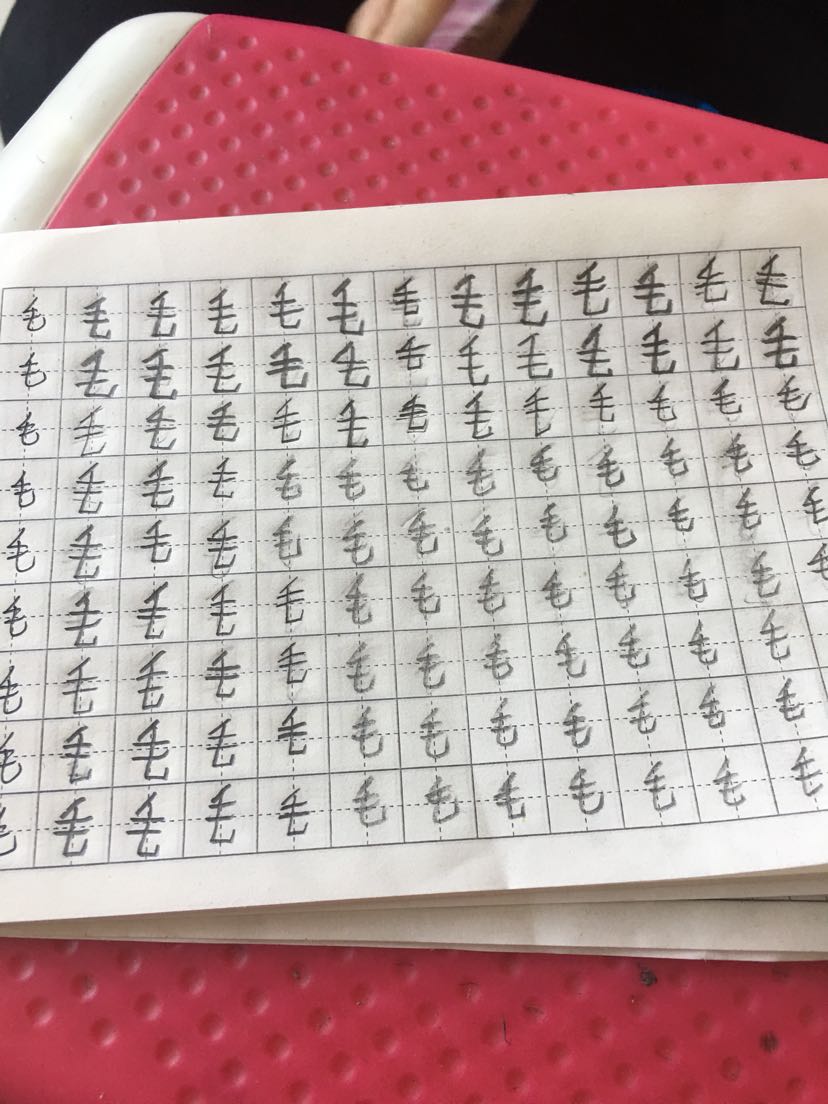 毛毛毛毛毛毛毛毛毛毛毛毛毛
毛毛毛毛毛毛毛毛毛毛毛毛毛
毛毛毛毛毛毛毛毛毛毛毛毛毛
毛毛毛毛毛毛毛毛毛毛毛毛毛
毛毛毛毛毛毛毛毛毛毛毛毛毛
毛毛毛毛毛毛毛毛毛毛毛毛毛
毛毛毛毛毛毛毛毛毛毛毛毛
毛毛毛毛毛毛毛毛毛毛毛毛
毛毛毛毛毛毛毛毛毛毛毛毛